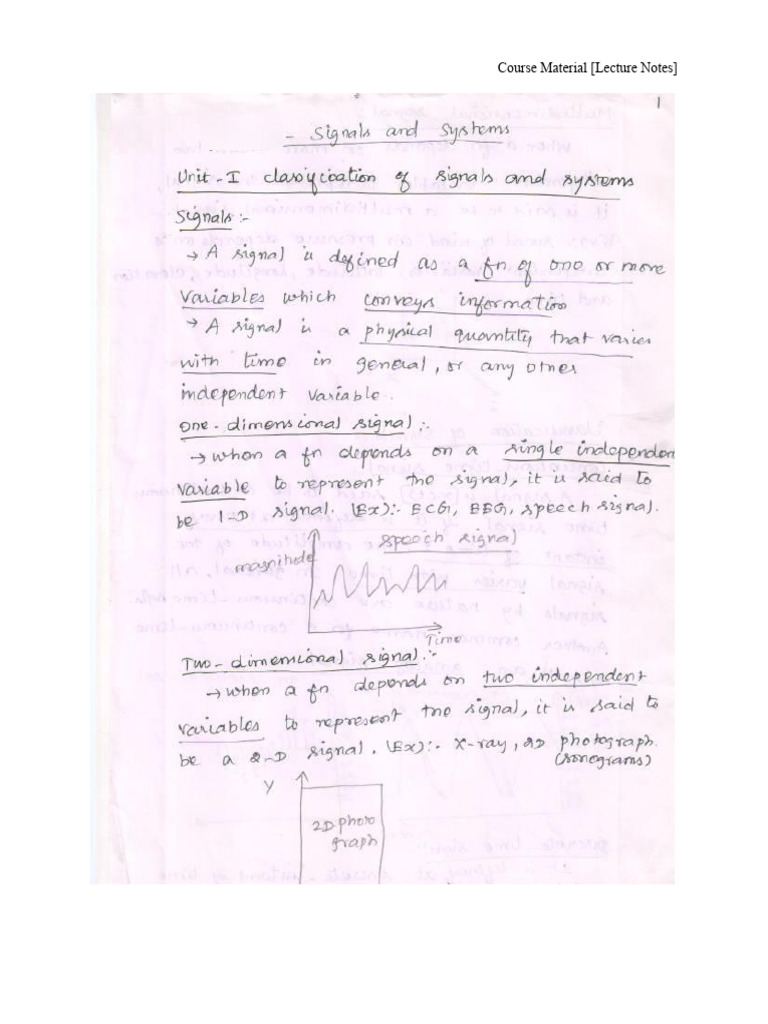 Course Material [Lecture Notes]
1
- Signals and Systems
Unit-I classification of signals and systems
Signals:-
→ A signal is defined as a fn of one or more
variables which conveys information
→ A signal is a physical quantity that varies
with time in general, or any other
independent variable.
One-dimensional signal:-
→ when a fn depends on a single independen
variable to represent the signal, it is said to
be 1-D signal. (Ex):- ECG, EEG, speech signal.
speech signal
magnitude
Time
Two-dimensional signal:-
→ when a fn depends on two independent
variables to represent the signal, it is said to
be a 2-D signal. (Ex):- X-ray, 2D photograph.
(sonograms)
Y
2D photo
graph